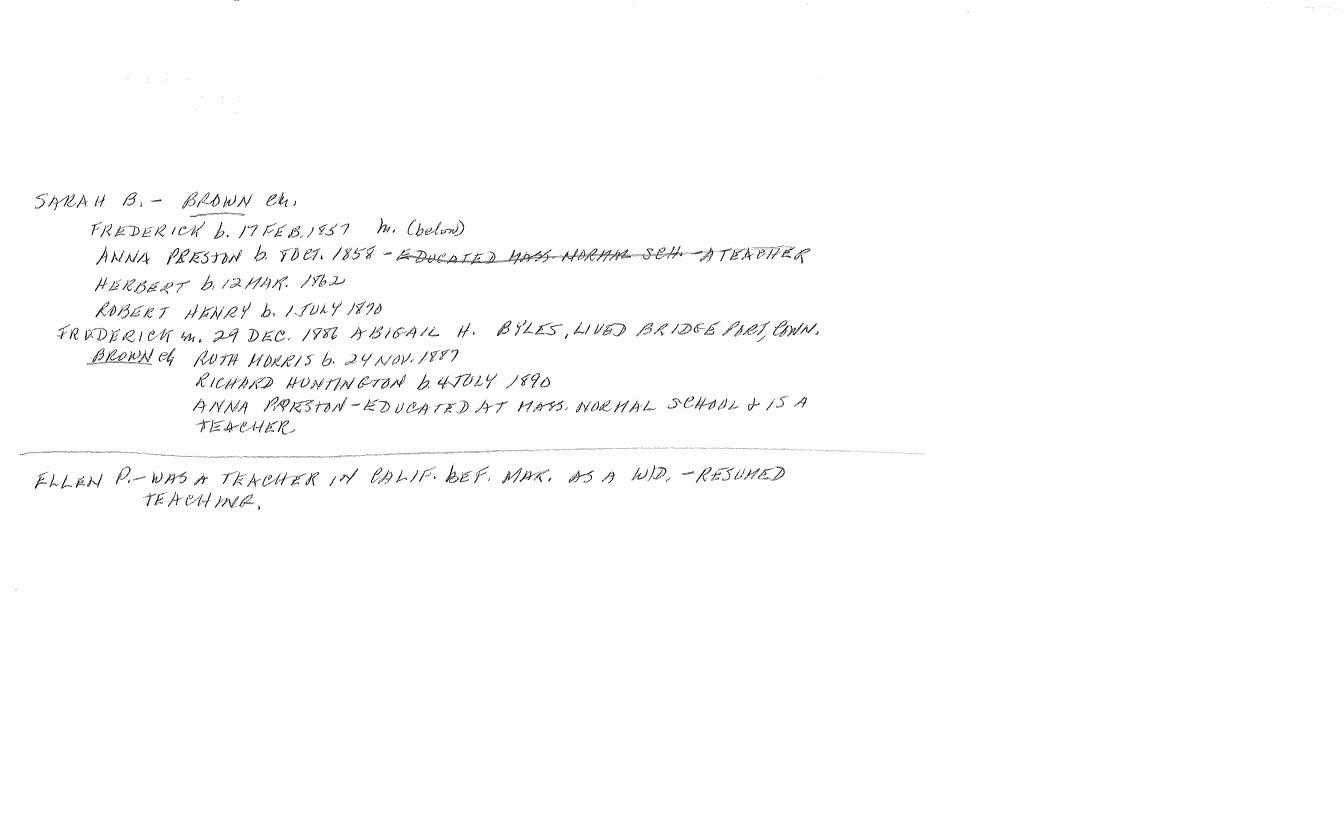 SARAH B. - BROWN ch.
FREDERICK b. 17 FEB. 1857 m. (below)
ANNA PRESTON b. 8 OCT. 1858 - EDUCATED MASS. NORMAL SCH. - A TEACHER
HERBERT b. 12 MAR. 1862
ROBERT HENRY b. 1 JULY 1870
FREDERICK m. 29 DEC. 1886 ABIGAIL H. BYLES, LIVED BRIDGEPORT, CONN.
BROWN ch RUTH MORRIS b. 24 NOV. 1887
RICHARD HUNTINGTON b. 4 JULY 1890
ANNA PRESTON - EDUCATED AT MASS. NORMAL SCHOOL & IS A
TEACHER
ELLEN P. - WAS A TEACHER IN CALIF. BEF. MAR. AS A WID. - RESUMED
TEACHING.